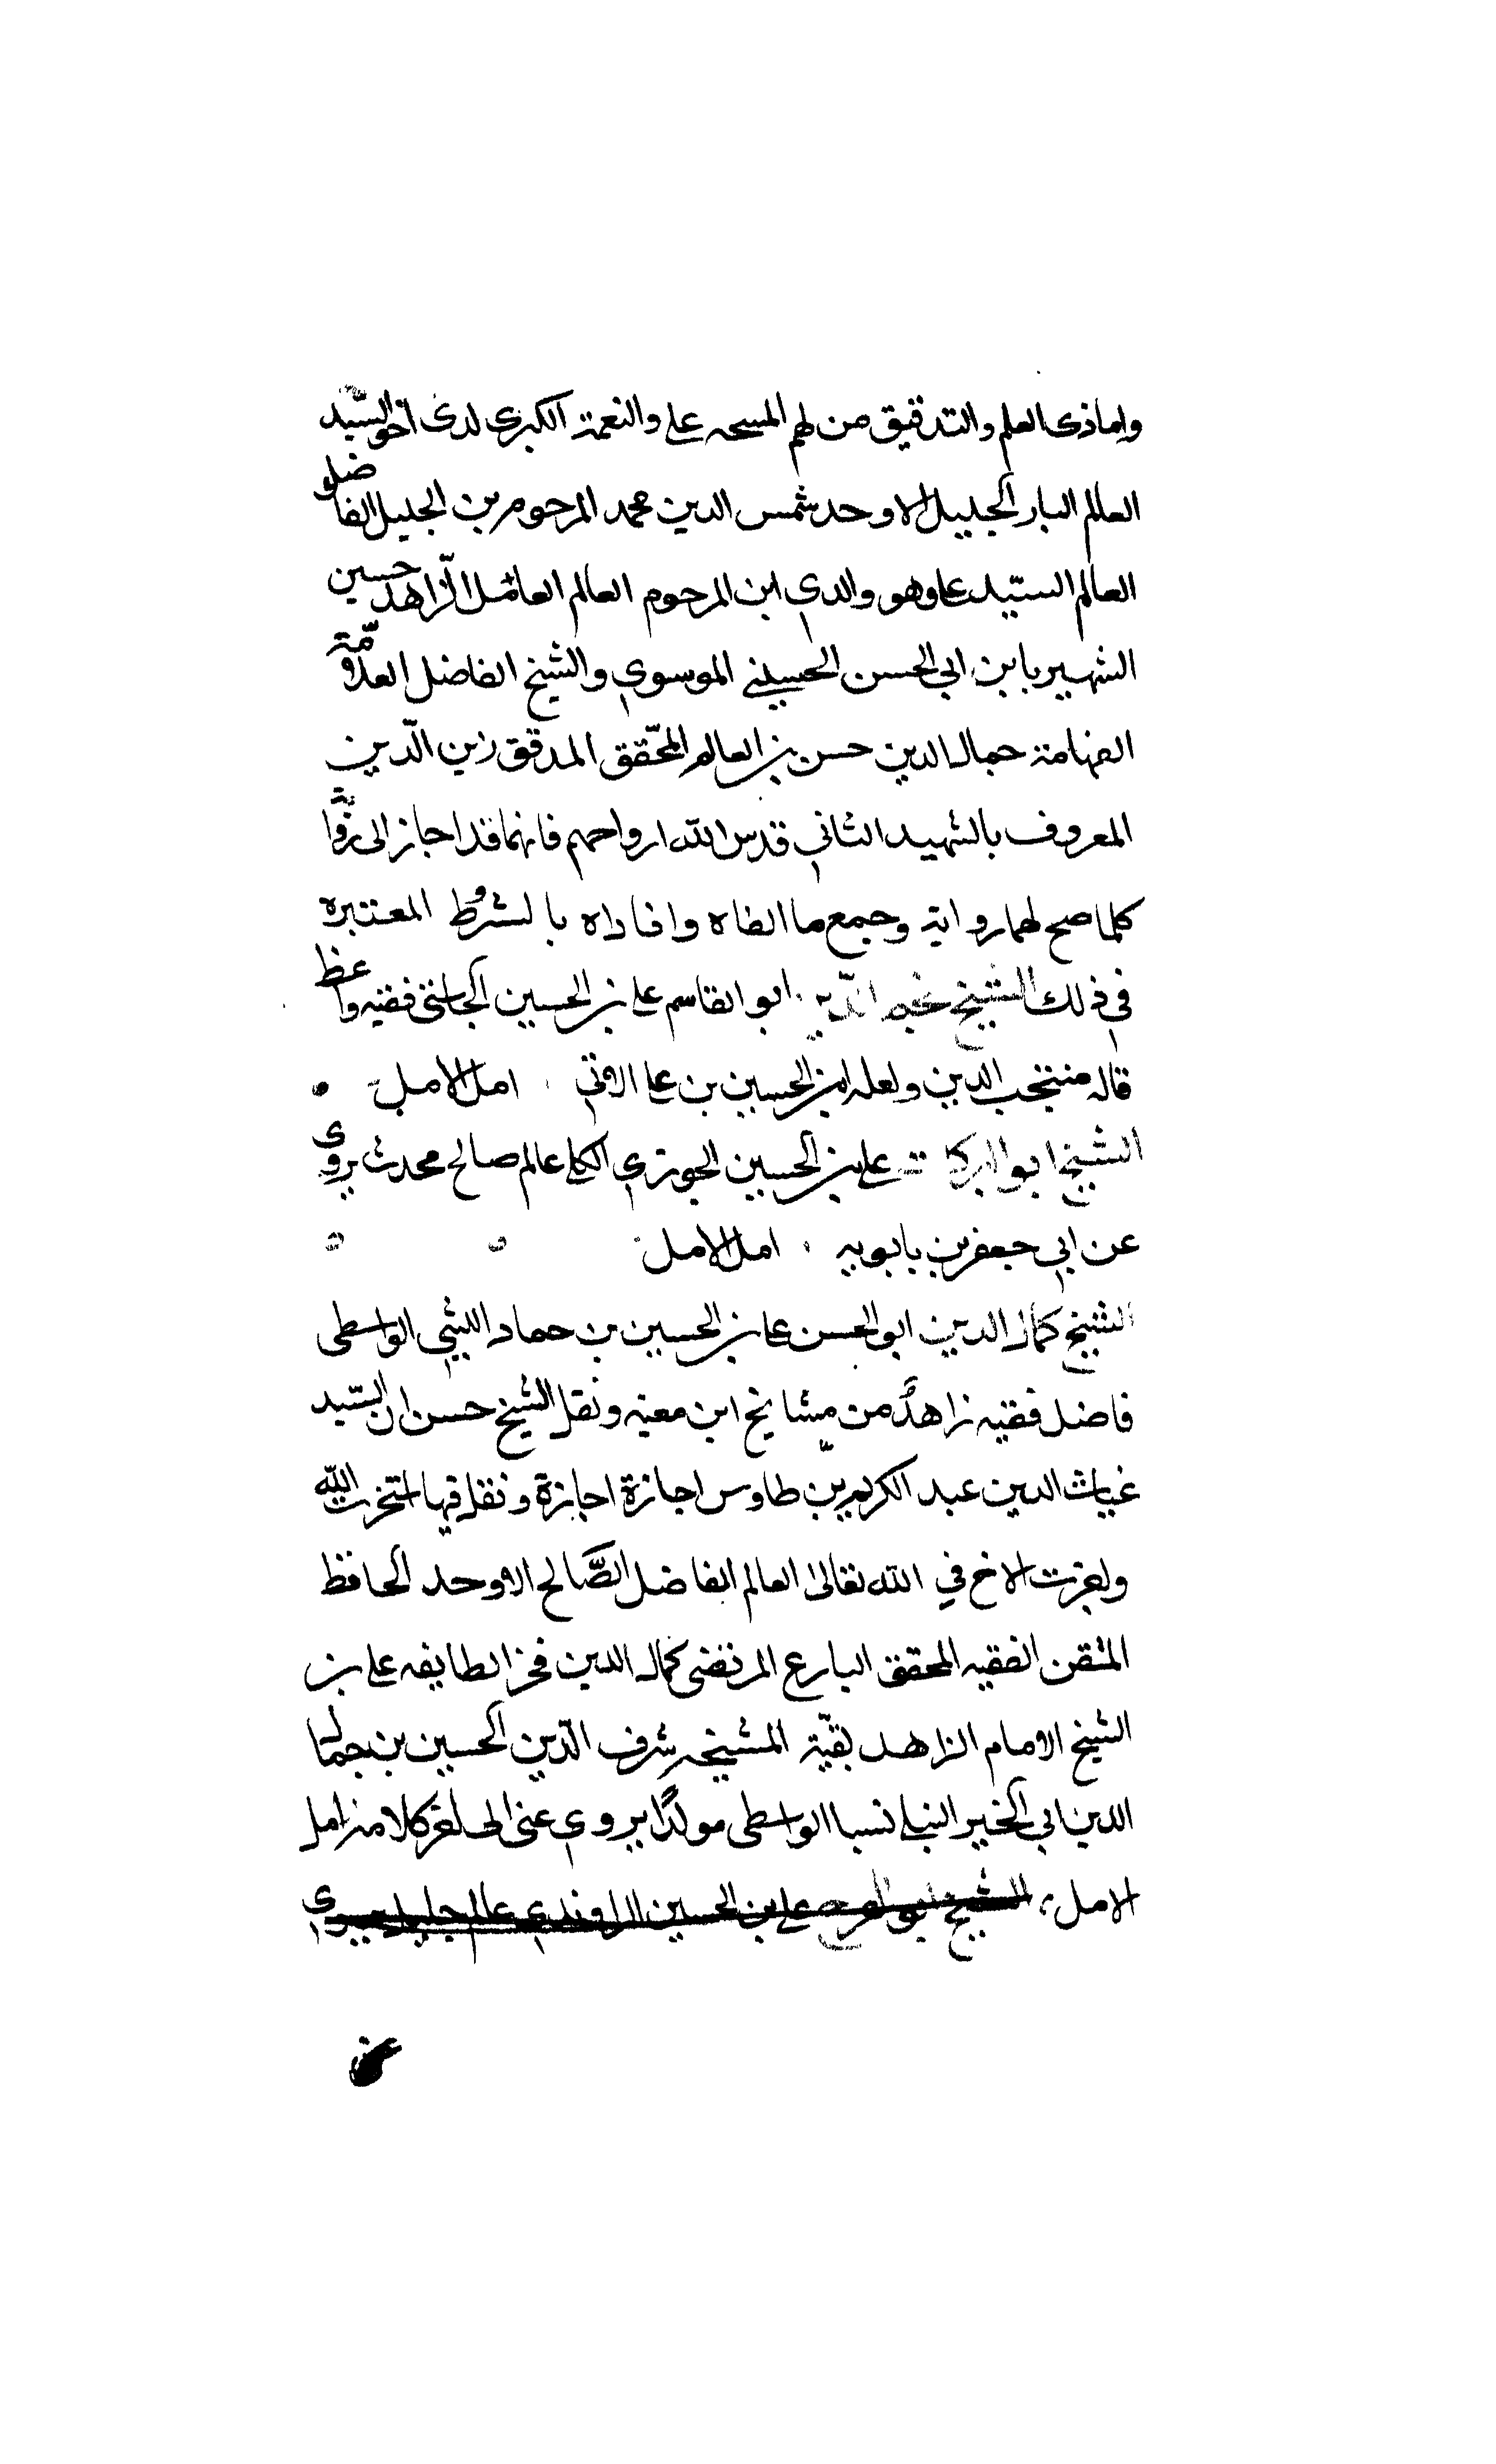 واماذى العلم والتدقيق من لهم المسحه على والنعمة الكبرى لدى اخو السّيد
العالم البار الجليل الاوحد شمس الدين محمد المرحوم بن الجليل الفاضل و
العالم السيّد على وهو والدي ابن المرحوم العالم العامل الزّاهد حسين
الشهير بابن ابي الحسن الحسيني الموسوي والشيخ الفاضل العلّامة و
الفهامة جمال الدين حسن بن العالم المحقّق المدقق زين الدّين
المعروف بالشهيد الثاني قدس الله ارواحهم فانهما قد اجاز الى
كلما صح لهما رواية وجمع ما الفاه وافاداه بالشروط المعتبره
في ذلك الشيخ نجم الدّين ابو القاسم على بن الحسين الجاستى فقيه واعظ
قاله منتجب الدين ولعله ابن الحسين بن على الاتى امل الامل
الشيخ ابو البركات على بن الحسين الجوزي الحلى عالم صالح محدث يروى
عن ابي جعفر بن بابويه امل الامل
الشيخ كمال الدين ابو الحسن على بن الحسين بن حماد الليثي الواسطى
فاضل فقيه زاهد من مشايخ ابن معيه ونقل الشيخ حسن ان السّيد
غياث الدين عبد الكريم بن طاوس اجازة اجازة ونقل فيها استخرت الله
واجزت الاخ في الله تعالى العالم الفاضل الصّالح الاوحد الحافظ
المتقن الفقيه المحقق البارع المرتضى كمال الدين فخر الطايفه على بن
الشيخ الامام الزاهد بقيّة المشيخه شرف الدّين الحسين بن جمال
الدين ابي الخير الليثى نسبا الواسطى مولدًا يروي عنى الى اخر كلامه امل
الامل الشيخ ابو الفرج على بن الحسين الراوندي عالم جليل يروي
عن